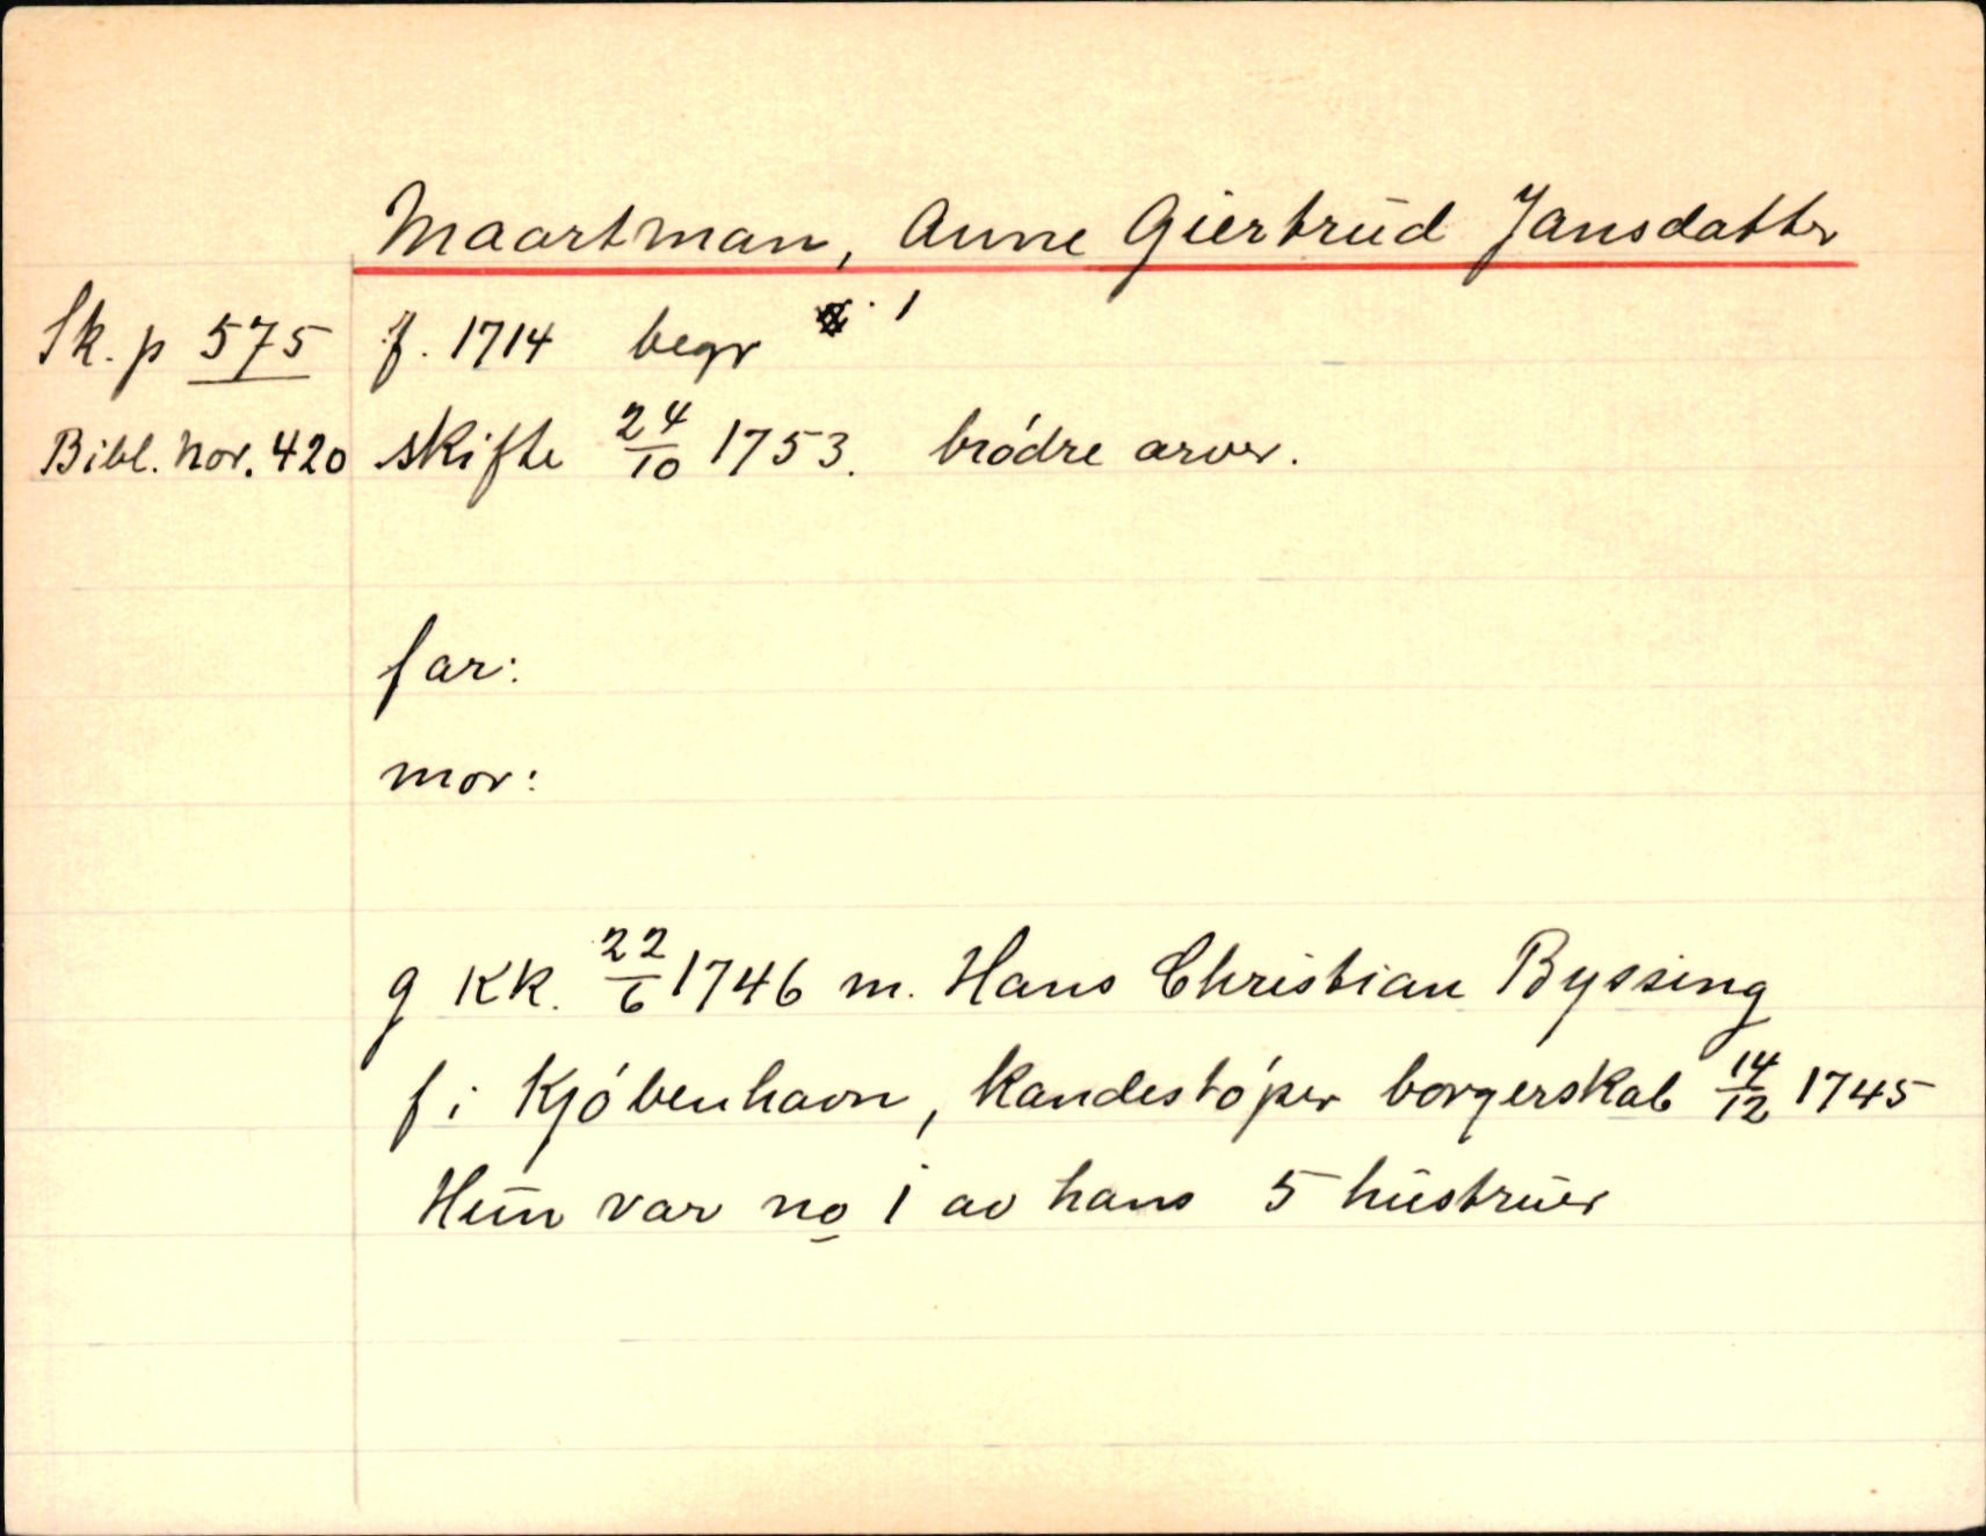 Maartman, Anne Giertrud Jansdatter
Sk. p 575 f. 1714 begr
Bibl. nor. 420 skifte 24/10 1753. brødre arver.
far:
mor:
g KK. 22/6 1746 m. Hans Christian Byssing
f i Kjøbenhavn, Kandestøper borgerskab 14/12 1745
Hun var no 1 av hans 5 hustruer